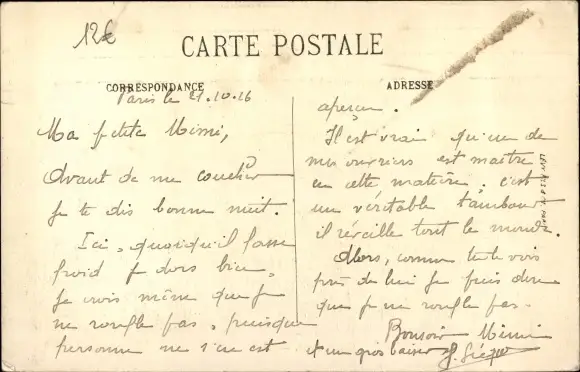 12€
CARTE POSTALE
CORRESPONDANCE
ADRESSE
Paris le 21.10.16
Ma petite Mimi,
Avant de me coucher
je te dis bonne nuit.
Ici, quoiqu'il fasse
froid je dors bien,
je crois même que je
ne ronfle pas, puisque
personne ne s'en est
aperçu.
Il est vrai qu'un de
mes ouvriers est maître
en cette matière. c'est
un véritable tambour
il réveille tout le monde.
Alors, comme tu le vois
près de lui je puis dire
que je ne ronfle pas.
Bonsoir Mimi
et un gros baiser